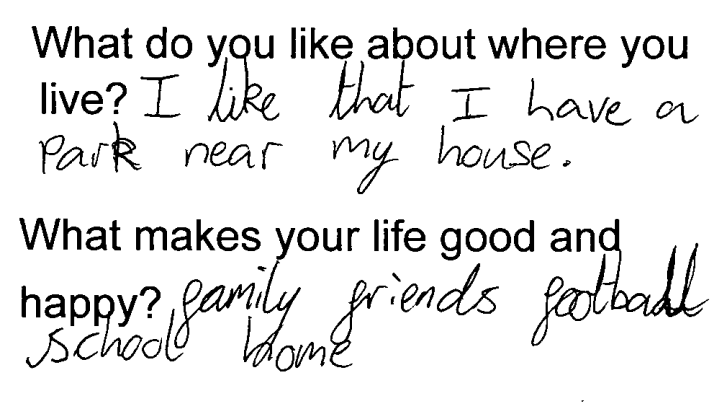 What do you like about where you
live? I like that I have a
park near my house.
What makes your life good and
happy? family friends football
school home